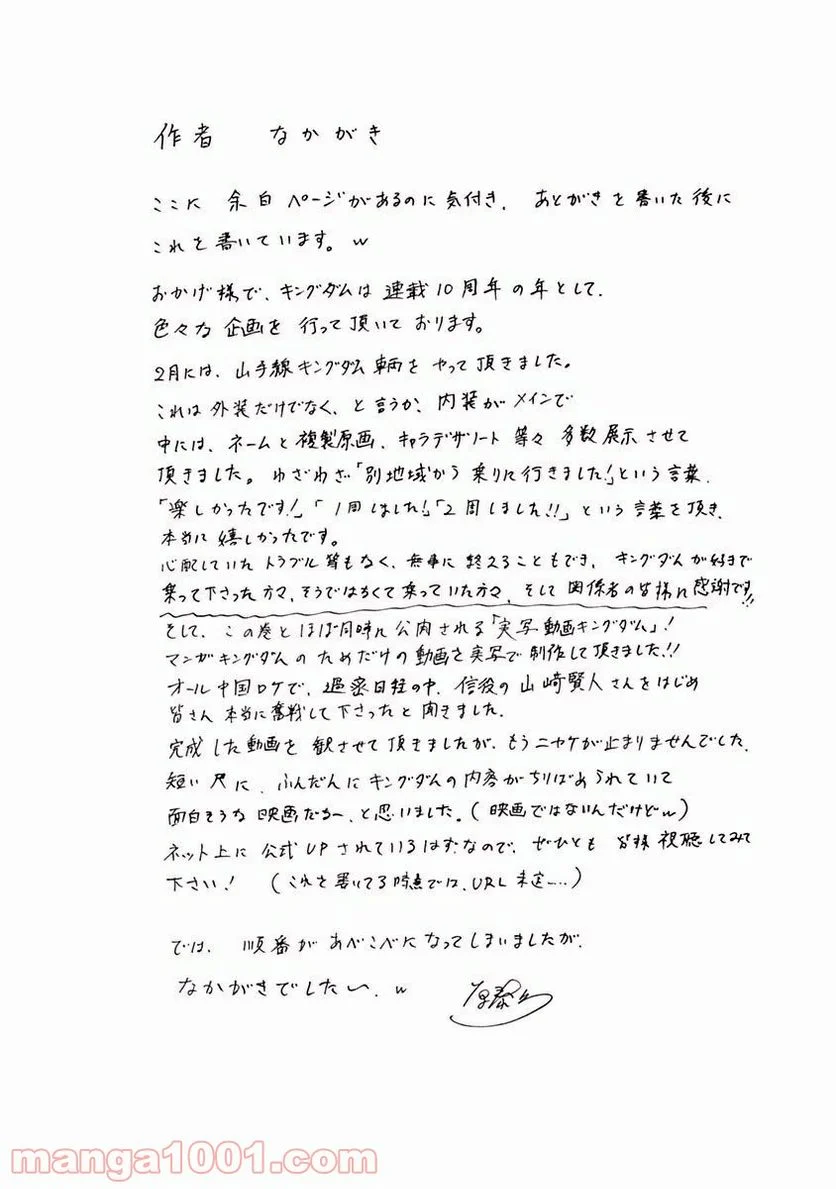 作者 なかがき
ここに 余白ページがあるのに気付き、あとがきを書いた後に
これを書いています。w
おかげ様で、キングダムは連載10周年の年として、
色々な企画を行って頂いております。
2月には、山手線キングダム車両をやって頂きました。
これは外装だけでなく、と言うか、内装がメインで
中には、ネームと複製原画、キャラデザノート等々 多数展示させて
頂きました。わざわざ「別地域から乗りに行きました!」という言葉、
「楽しかったです!」「1周しました!」「2周しました!!」という言葉を頂き、
本当に嬉しかったです。
心配していたトラブル等もなく、無事に終えることもでき、キングダムが好きで
乗って下さった方々、そうではなくて乗っていた方々、そして関係者の皆様に感謝です!!
そして、この巻とほぼ同時に公開される「実写動画キングダム」!
マンガキングダムのためだけの動画を実写で制作して頂きました!!
オール中国ロケで、過密日程の中、信役の山﨑賢人さんをはじめ
皆さん本当に奮戦して下さったと聞きました。
完成した動画を観させて頂きましたが、もうニヤケが止まりませんでした。
短い尺に、ふんだんにキングダムの内容がちりばめられていて
面白そうな映画だなー、と思いました。(映画ではないんだけどw)
ネット上に公式UPされているはずなので、ぜひとも皆様視聴してみて
下さい! (これを書いてる時点では、URL未定……)
では、順番があべこべになってしまいましたが、
なかがきでした〜、w 原泰久
manga1001.com